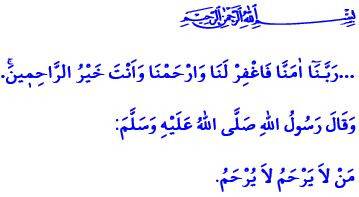 بِسْمِ اللهِ الرَّحْمٰنِ الرَّحِيمِ
...رَبَّنَٓا اٰمَنَّا فَاغْفِرْ لَنَا وَارْحَمْنَا وَاَنْتَ خَيْرُ الرَّاحِم۪ينَۚ.
وَقَالَ رَسُولُ اللهِ صَلَّى اللهُ عَلَيْهِ وَسَلَّمَ:
مَنْ لاَ يَرْحَمُ لاَ يُرْحَمُ.